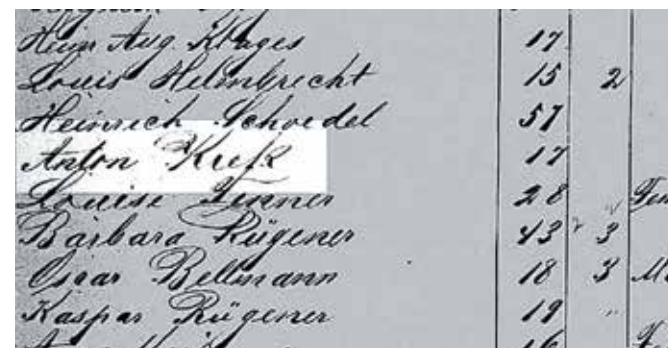 Hein Aug. Klages 17
Louis Helmbrecht 15 2
Heinrich Schoedel 57
Anton 17
Louise Fenner 28
Barbara Rügener 43 3
Oscar Bellmann 18 3
Kaspar Rügener 19 "
16